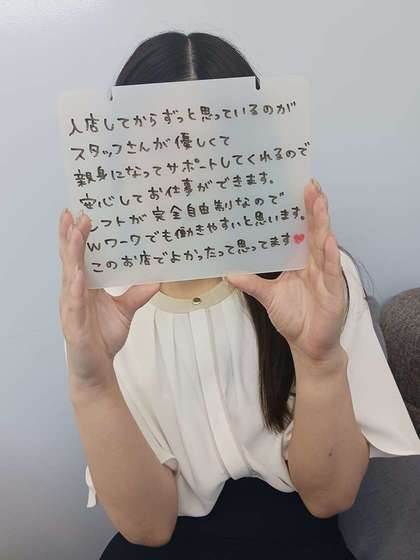 入店してからずっと思っているのが
スタッフさんが優しくて
親身になってサポートしてくれるので
安心してお仕事ができます。
シフトが完全自由制なので
Wワークでも働きやすいと思います。
このお店でよかったって思ってます❤